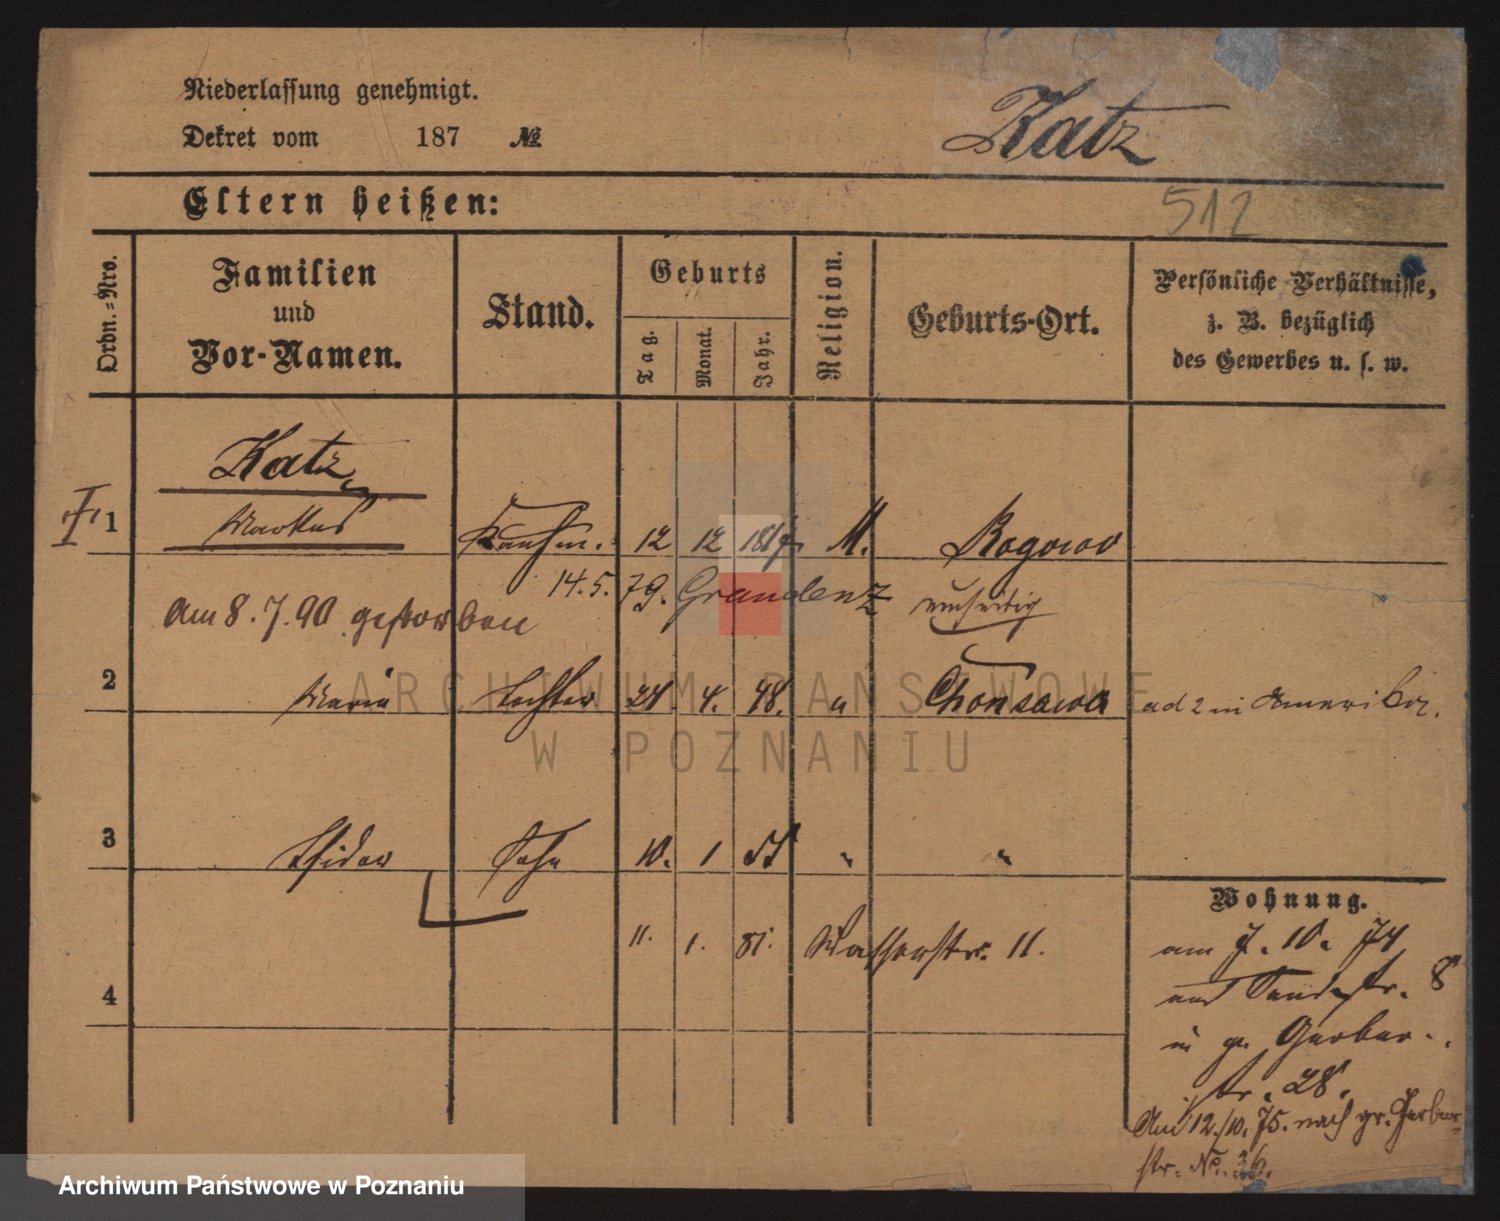 Niederlassung genehmigt.
Dekret vom 187 №
Katz
512
Eltern heißen:
Ordn.-Nro.
Familien und Vor-Namen.
Stand.
Geburts
Tag.
Monat.
Jahr.
Religion.
Geburts-Ort.
Persönliche Verhältnisse,
z. B. bezüglich
des Gewerbes u. s. w.
Katz
1 Markus Kaufm. 12 12 181 M. Rogowo
14.5.79. Graudenz
Am 8.7.90 gestorben
2 Maria Tochter 4. 48. " ad 2 in Amerika.
3 Isidor Sohn 10. 1 " "
11. 1. 81. Wasserstr. 11.
4
Wohnung.
am 7. 10. 74
aus Sandstr. 8
in gr. Gerber-
str. 28.
Am 12./10. 75. nach gr. Gerber-
str. No. 36.
ARCHIWUM PAŃSTWOWE
W POZNANIU
Archiwum Państwowe w Poznaniu